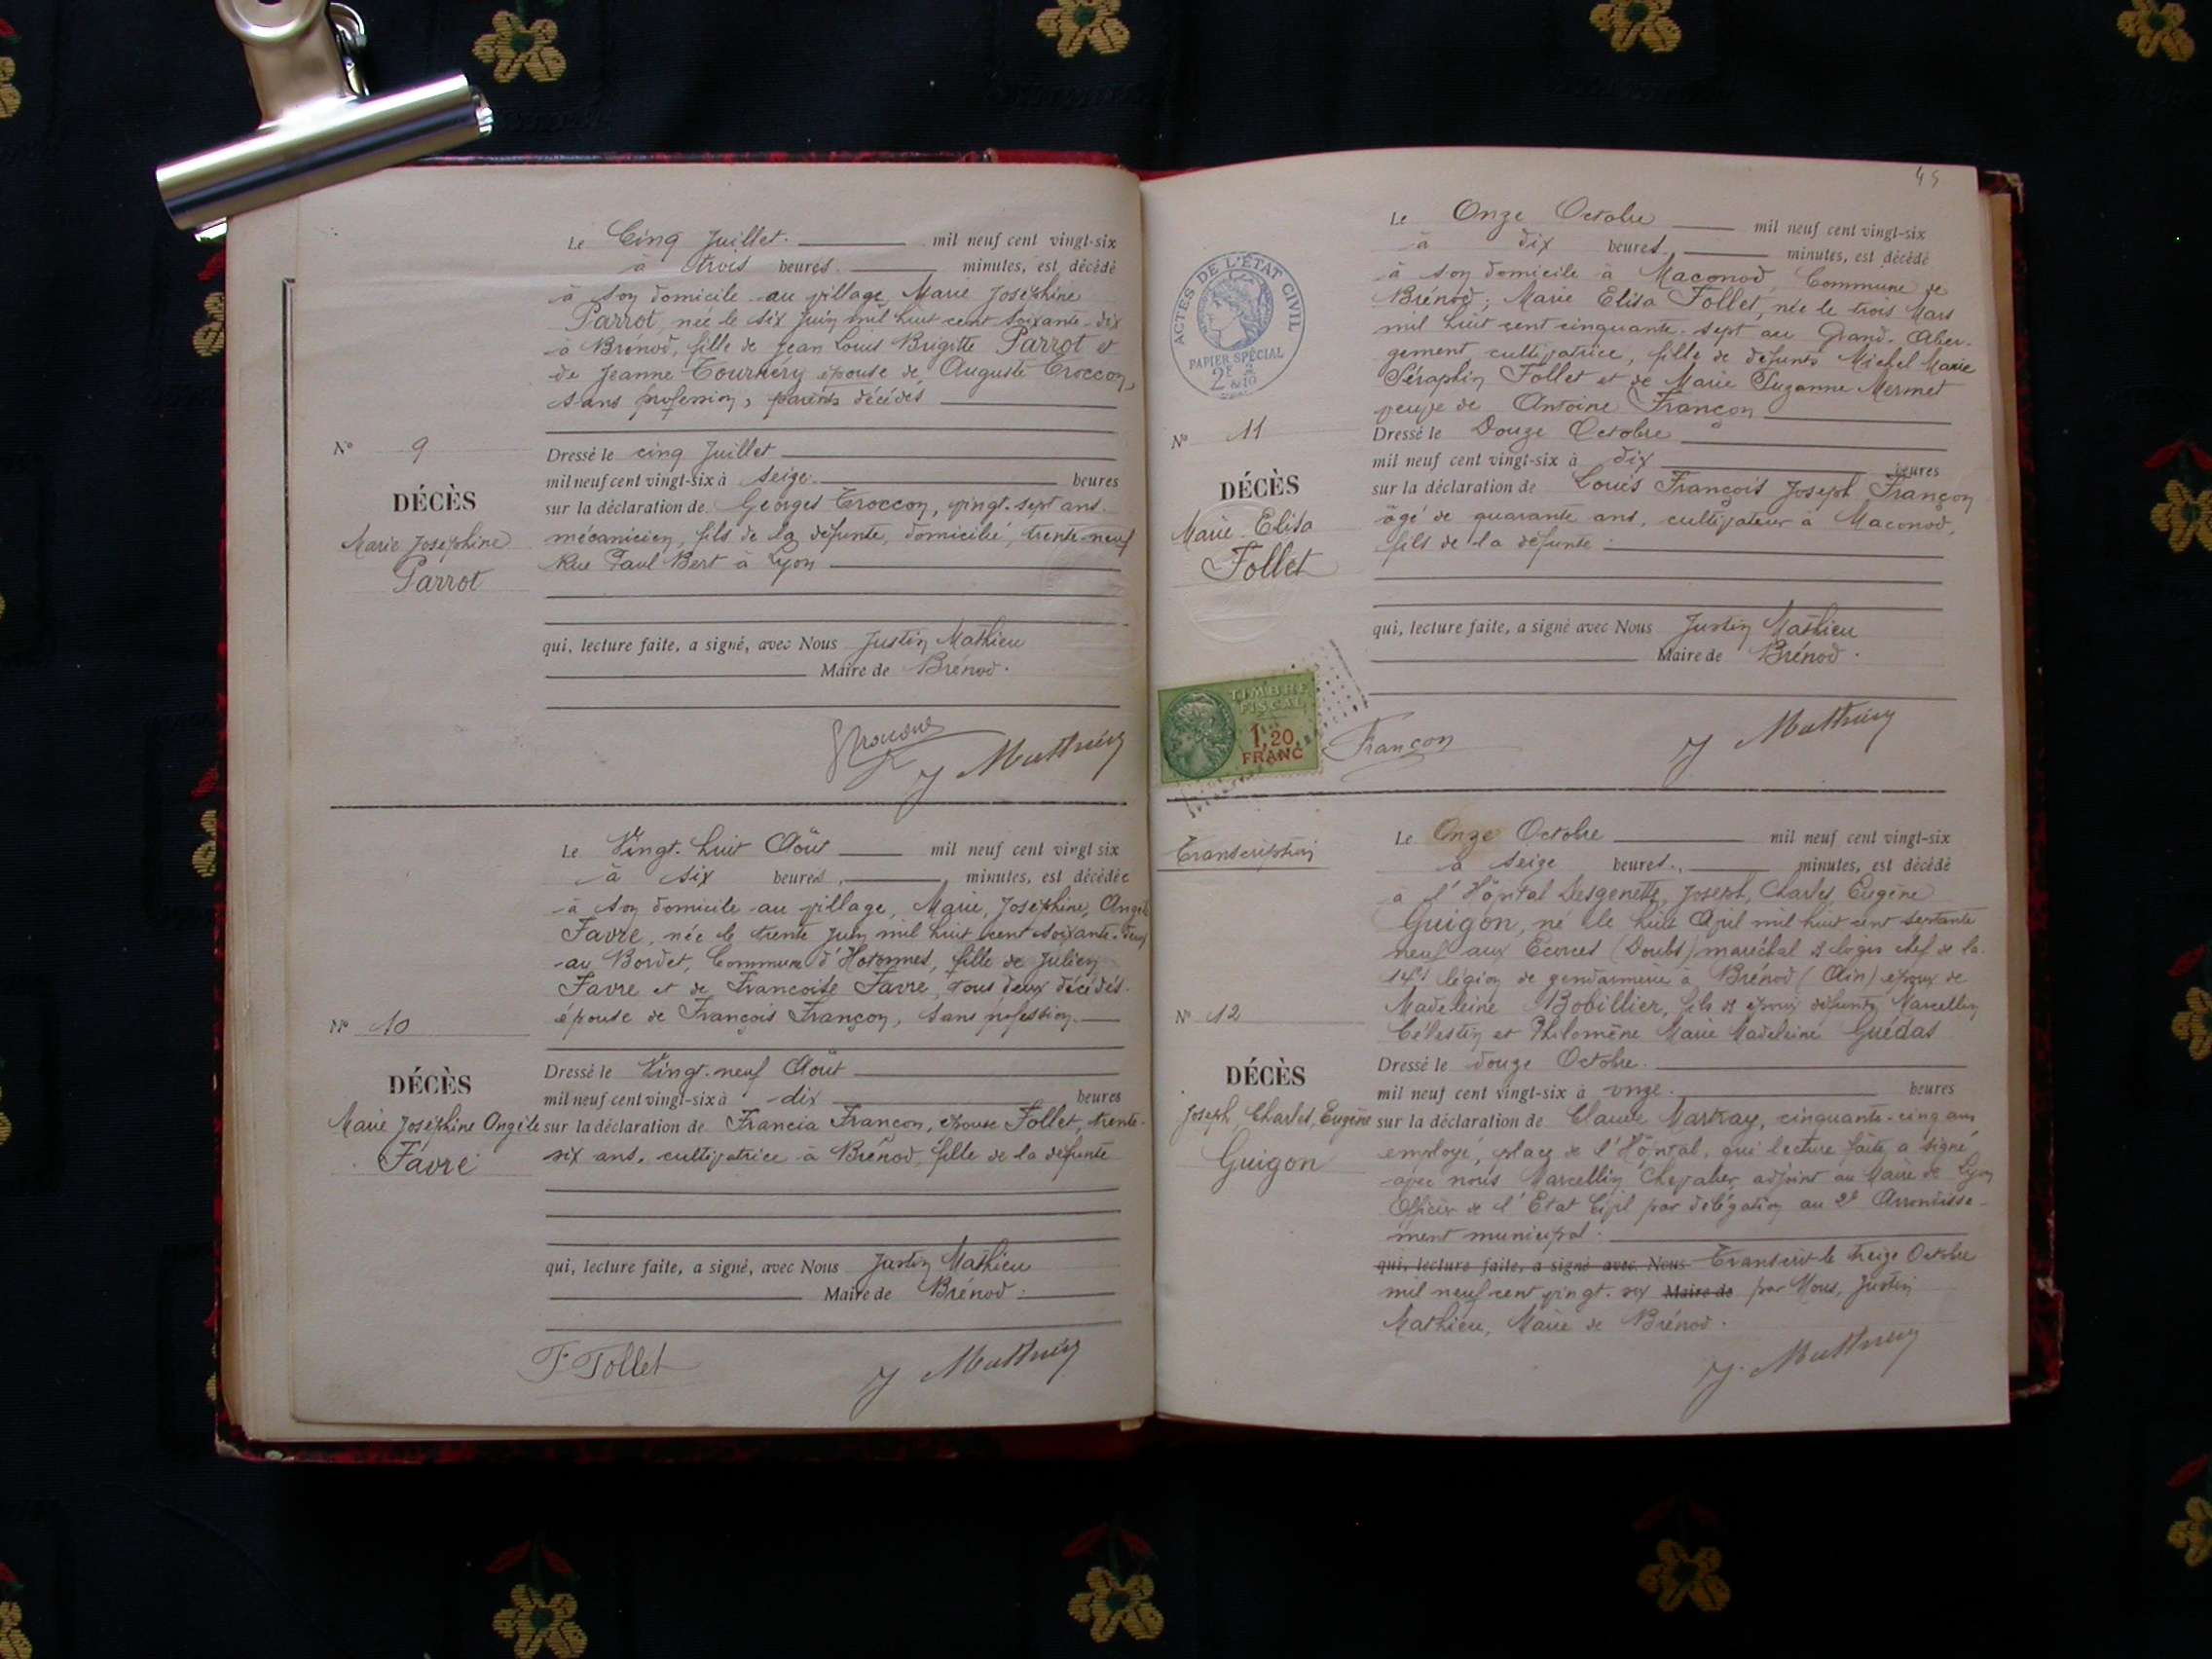 Le Cinq Juillet. mil neuf cent vingt-six
à trois heures. minutes, est décédé
à son domicile au village, Marie Joséphine
Parrot, née le six Juin mil huit cent soixante-dix
à Brénod, fille de Jean Louis Brigitte Parrot et
de Jeanne Tournery épouse de Auguste Troccon,
sans profession, parents décédés
N° 9
DÉCÈS
Marie Joséphine
Parrot
Dressé le cinq Juillet
mil neuf cent vingt-six à seize heures
sur la déclaration de Georges Troccon, vingt-sept ans.
mécanicien, fils de la défunte, domicilié, trente-neuf
Rue Paul Bert à Lyon
qui, lecture faite, a signé, avec Nous Justin Mathieu
Maire de Brénod.
J Mathieu
Le Vingt-huit Août mil neuf cent vingt six
à six heures, minutes, est décédée
à son domicile au village, Marie, Joséphine, Angèle
Favre, née le trente Juin mil huit cent soixante-deux
au Bordet, Commune d'Hotonnes, fille de Julien
Favre et de Françoise Favre, tous deux décédés.
épouse de François Françon, sans profession.
N° 10
DÉCÈS
Marie Joséphine Angèle
Favre
Dressé le Vingt-neuf Août
mil neuf cent vingt-six à dix heures
sur la déclaration de Francia Françon, épouse Follet, trente-
six ans, cultivatrice à Brénod, fille de la défunte
qui, lecture faite, a signé, avec Nous Justin Mathieu
Maire de Brénod.
F Follet J Mathieu
45
ACTES DE L'ÉTAT CIVIL
PAPIER SPÉCIAL
Le Onze Octobre mil neuf cent vingt-six
à dix heures, minutes, est décédé
à son domicile à Maconod, Commune de
Brénod; Marie Elisa Follet, née le trois Mars
mil huit cent cinquante-sept au Grand-Aber-
gement, cultivatrice, fille de défunts Michel Marie
Séraphin Follet et de Marie Suzanne Mermet
veuve de Antoine Françon
N° 11
DÉCÈS
Marie Elisa
Follet
Dressé le Douze Octobre
mil neuf cent vingt-six à dix heures
sur la déclaration de Louis François Joseph Françon
âgé de quarante ans, cultivateur à Maconod,
fils de la défunte.
qui, lecture faite, a signé avec Nous Justin Mathieu
Maire de Brénod.
TIMBRE
FISCAL
1,20
FRANC
Françon J Mathieu
Transcription
Le Onze Octobre mil neuf cent vingt-six
à seize heures., minutes, est décédé
à l'Hôpital Desgenettes, Joseph, Charles, Eugène
Guigon, né le huit Avril mil huit cent septante
neuf aux Ecorces (Doubs) maréchal des logis chef de la
14e légion de gendarmerie à Brénod (Ain) époux de
Madeleine Bobillier, fils de époux défunts Marcellin
Célestin et Philomène Marie Madeleine Guedas
N° 12
DÉCÈS
Joseph, Charles, Eugène
Guigon
Dressé le douze Octobre.
mil neuf cent vingt-six à onze. heures
sur la déclaration de Claude Martray, cinquante-cinq ans
employé, place de l'Hôpital, qui lecture faite a signé
avec nous Marcellin Chevalier, adjoint au Maire de Lyon
Officier de l'Etat Civil par délégation au 2e Arrondisse-
ment municipal.
qui, lecture faite, a signé avec Nous Transcrit le treize Octobre
mil neuf cent vingt-six Maire de par Nous, Justin
Mathieu, Maire de Brénod.
J. Mathieu